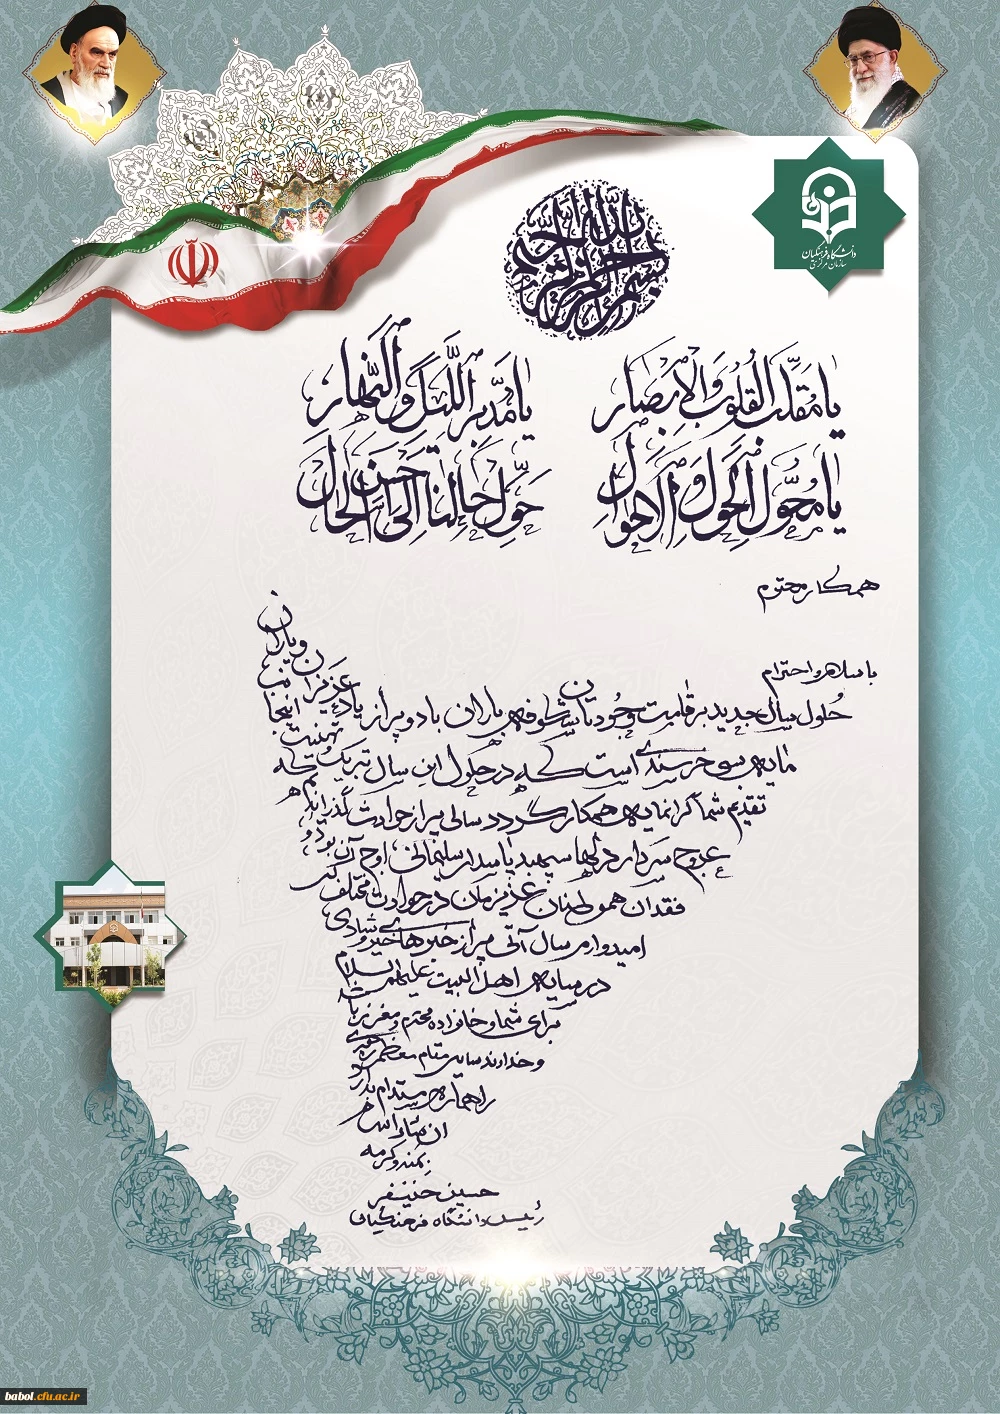 دانشگاه فرهنگیان
سازمان مرکزی
بسم الله الرحمن الرحیم
یا مُقَلِّبَ القُلُوبِ وَالاَبصَار یا مُدَبِّرَ اللَّیلِ وَالنَّهارِ
یا مُحَوِّلَ الحَولِ وَ الاَحوالِ حَوِّل حالَنا اِلی اَحسَنِ الحالِ
همکار محترم
با سلام و احترام
حُلول سال جدید بر قامت وجُودتان شکوفه باران باد و پر از یاد عزیزان و یاران
مایه بسی خرسندی است که در حلول این سال تبریک و تهنیت
تقدیم شما گرانمایه همکار گردد سالی پر از حوادث گذراندیم که
عروج سردار دلها سپهبد پاسدار سلیمانی اوج آن بود و
فقدان هموطنان عزیزمان در حوادث مختلف
امیدوارم سال آتی پر از خبرهای خیر و شادی
در سایه اهل البیت علیهم السلام
برای شما و خانواده محترم و معزز باشد
و خداوند سایه مقام معظم رهبری
را همواره مستدام بدارد
ان شاء الله
بمنه و کرمه
حسین خنیفر
رئیس دانشگاه فرهنگیان
babol.cfu.ac.ir